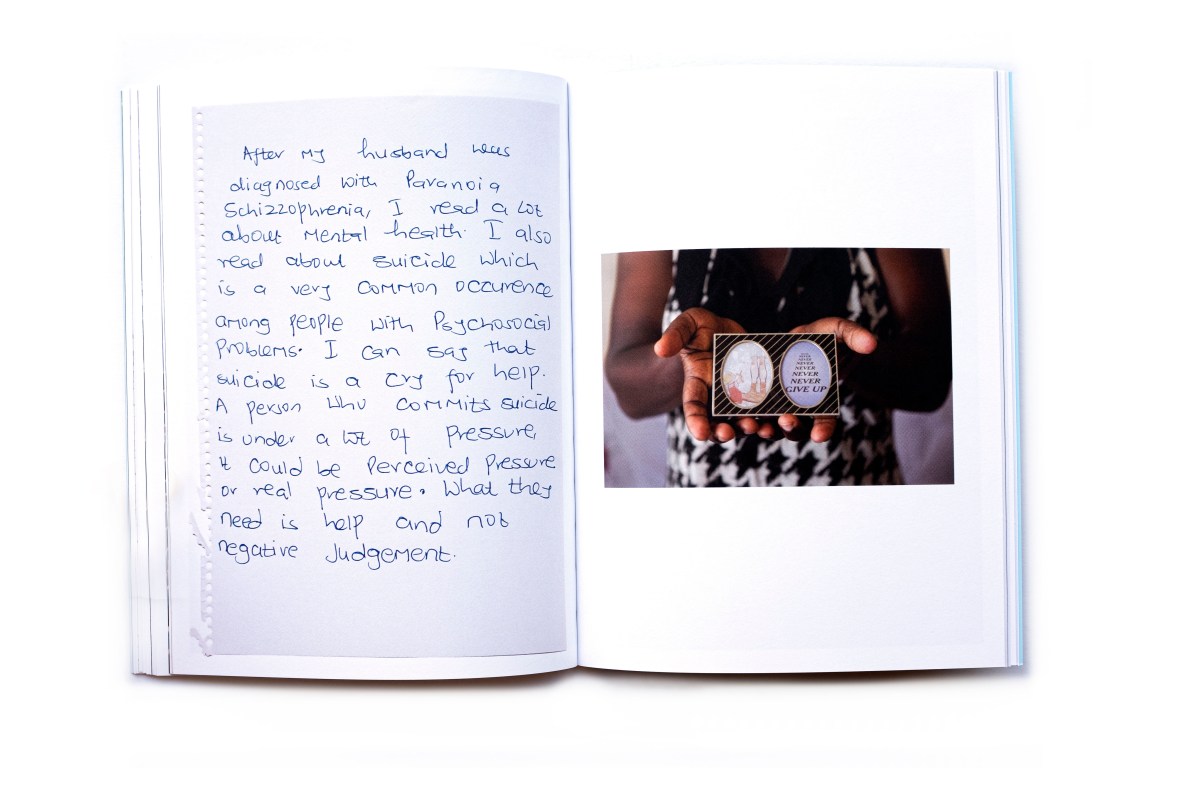 After my husband was
diagnosed with Paranoia
Schizzophrenia, I read a lot
about Mental health. I also
read about suicide which
is a very common occurence
among people with Psychosocial
Problems. I can say that
suicide is a cry for help.
A person who commits suicide
is under a lot of pressure,
it could be Perceived Pressure
or real pressure. What they
need is help and not
negative Judgement.
NEVER
NEVER
NEVER
NEVER
NEVER
GIVE UP